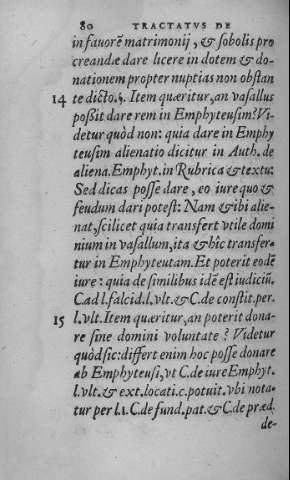 80 TRACTATVS DE
in fauorē matrimonij, & sobolis pro
creandæ dare licere in dotem & do-
nationem propter nuptias non obstan
te dicto. §. Item quæritur, an vasallus
14
possit dare rem in Emphyteusim? Vi-
detur quòd non: quia dare in Emphy
teusim alienatio dicitur in Auth. de
aliena. Emphyt. in Rubrica & textu:
Sed dicas posse dare, eo iure quo &
feudum dari potest: Nam & ibi alie-
nat, scilicet quia transfert vtile domi
nium in vasallum, ita & hic transfer-
tur in Emphyteutam. Et poterit eodē
iure: quia de similibus idē est iudiciū.
C. ad l. falcid. l. vlt. & C. de constit. per.
15 l. vlt. Item quæritur, an poterit dona-
re sine domini voluntate? Videtur
quòd sic: differt enim hoc posse donare
ab Emphyteusi, vt C. de iure Emphyt.
l. vlt. & ext. locati. c. potuit. vbi nota-
tur per l. 1. C. de fund. pat. & C. de præd.
de-